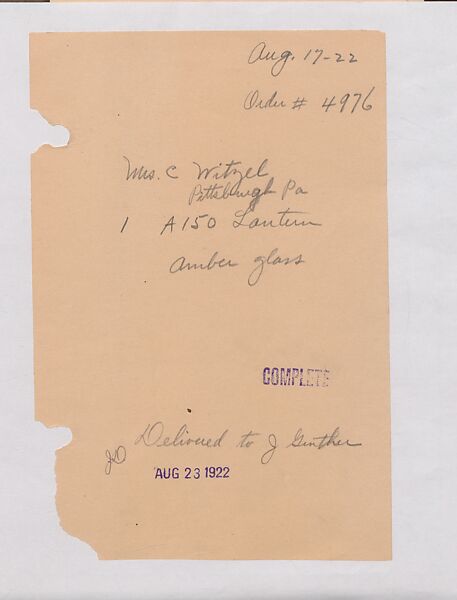 Aug. 17-22
Order # 4976
Mrs. C Witzel
Pittsburgh Pa
1 A150 Lantern
Amber glass
COMPLETE
Delivered to J Ginther
AUG 23 1922